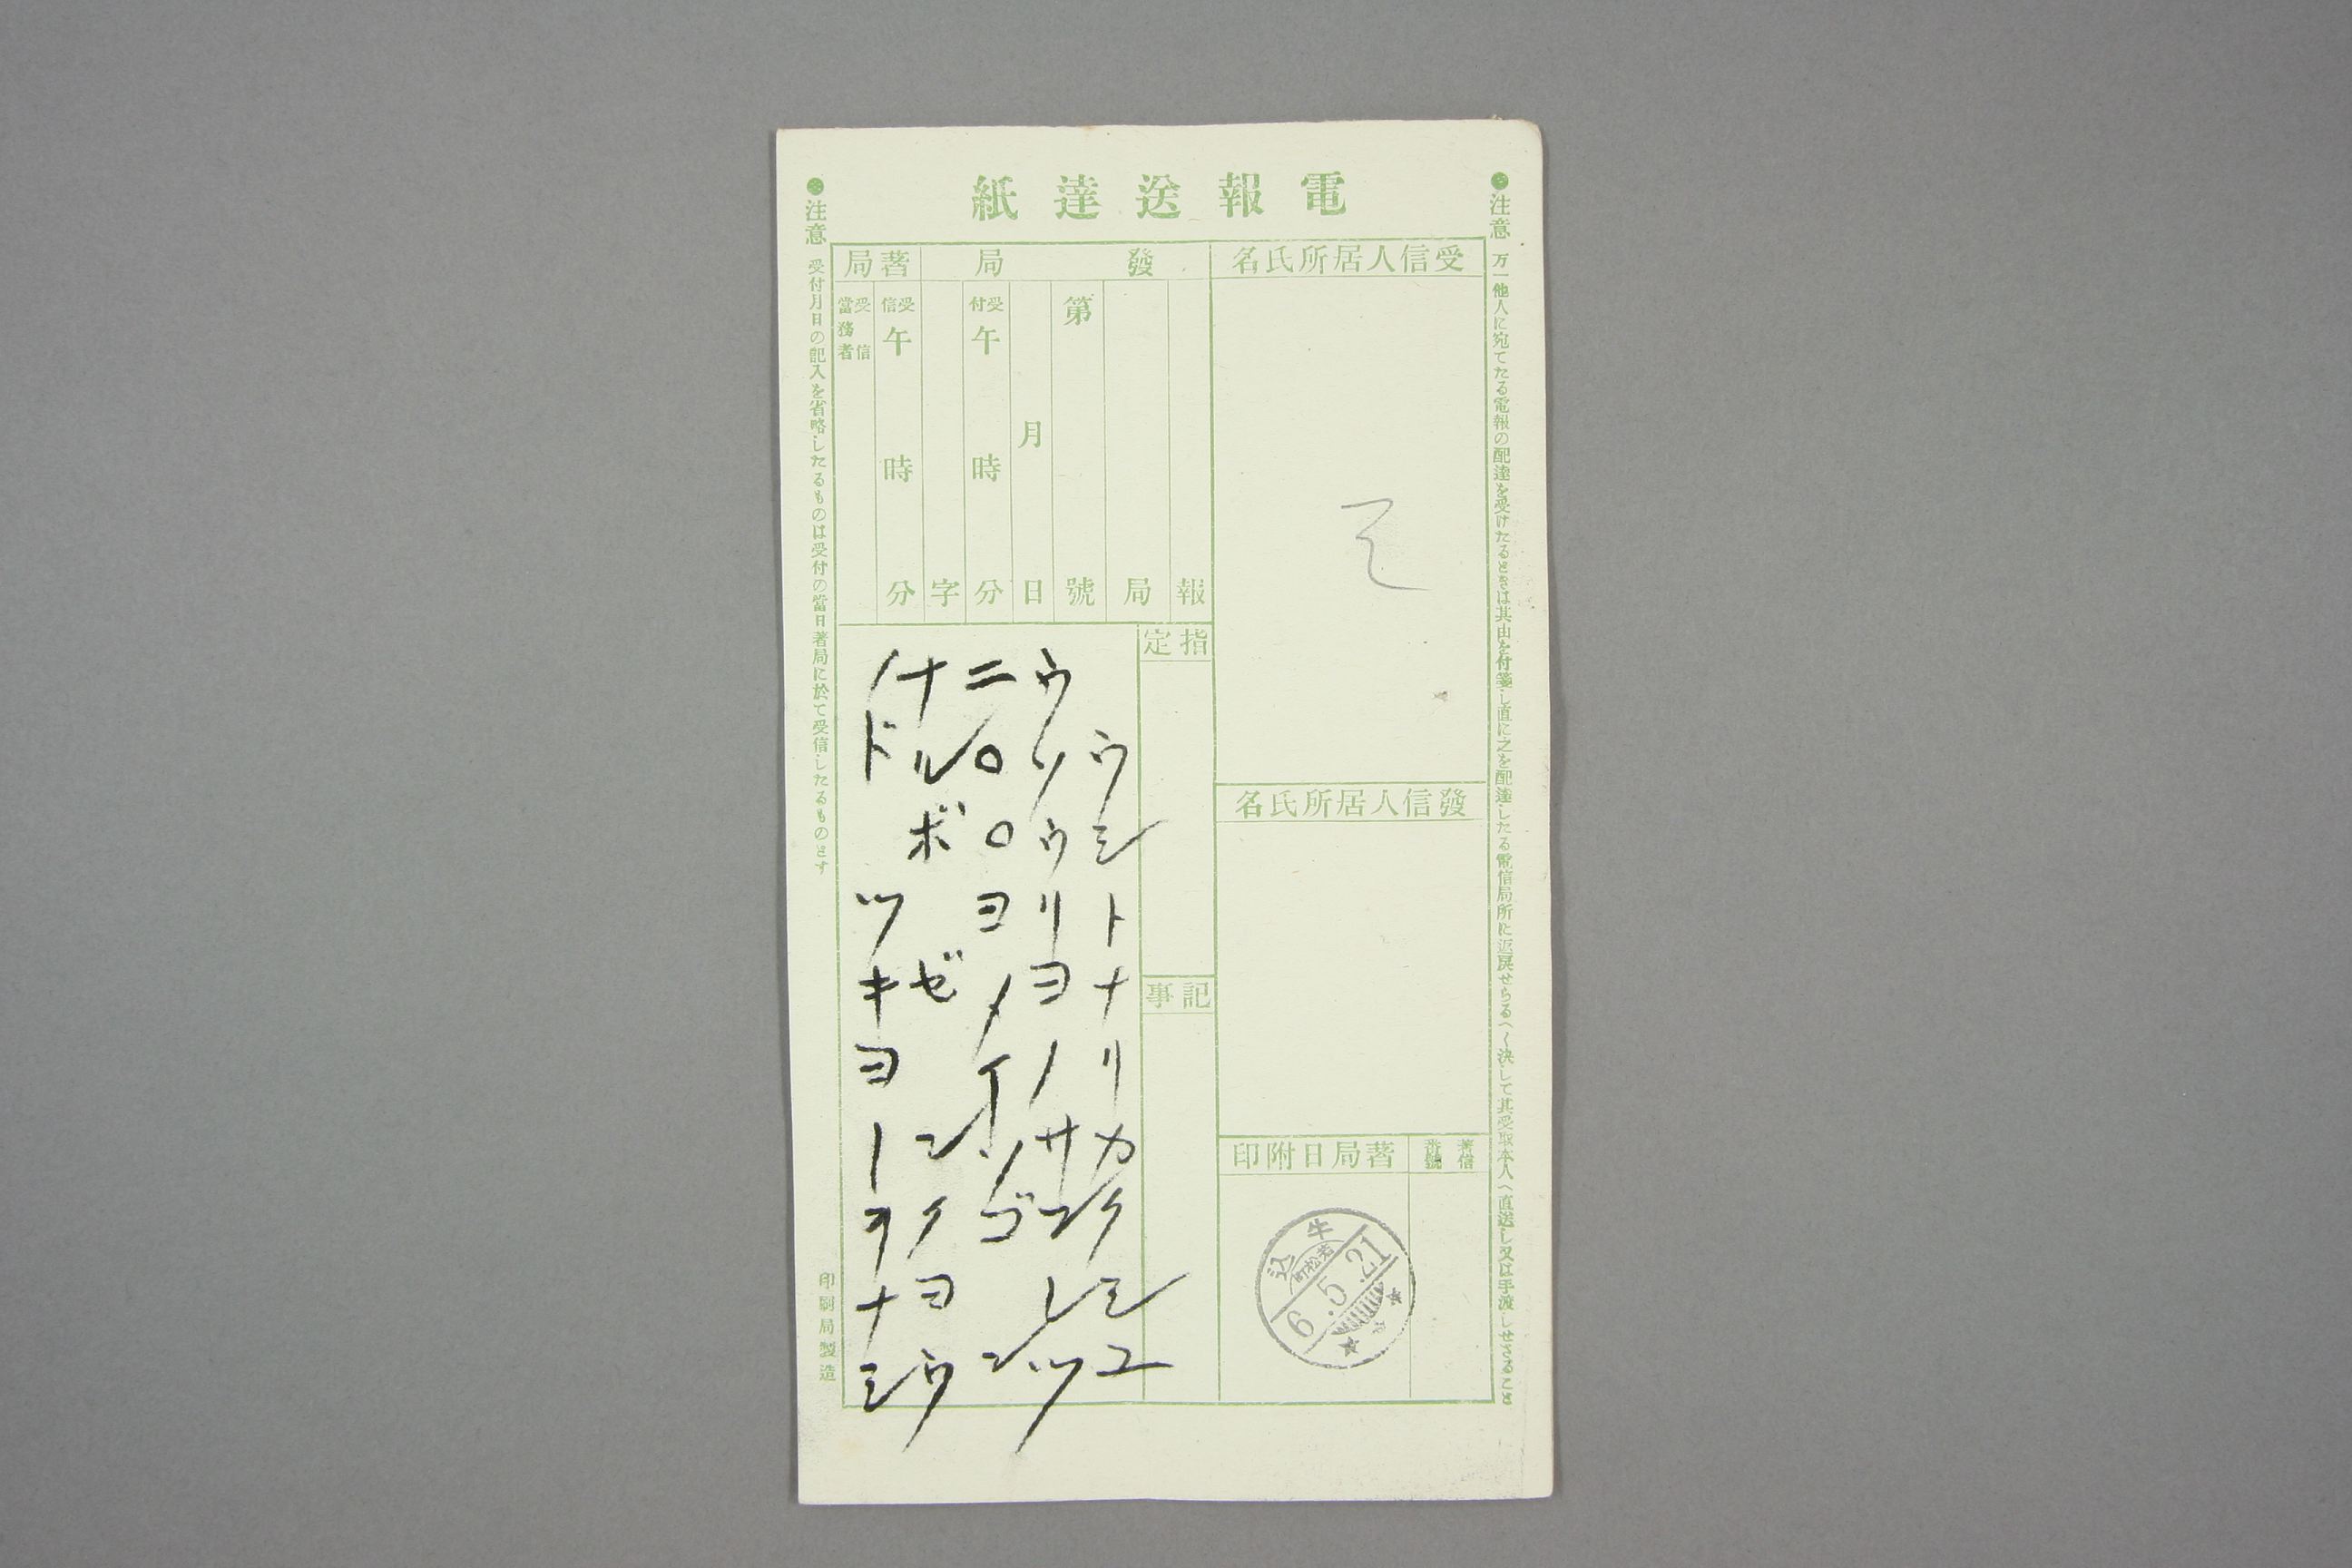 電報送達紙
●注意 万一他人に宛てたる電報の配達を受けたるときは其由を付箋し直に之を配達したる電信局所に返戻せらるへし決して其受取本人へ直送し又は手渡しせさること
受信人居所氏名
発信人居所氏名
著信番號
著局日附印
牛込
若松町
6.5.21
發局
報
局
第 號
月 日
受付 午 時 分
字
著局
受信 午 時 分
受信當務者
指定
記事
ウシトナリカクシユ
ウソウリヨノサンレツ
ニ〇〇ヨメイソゴン
ナルボゼンクヨウ
ノドツキヨーヲナシ
●注意 受付月日の記入を省略したるものは受付の當日著局に於て受信したるものとす
印刷局製造